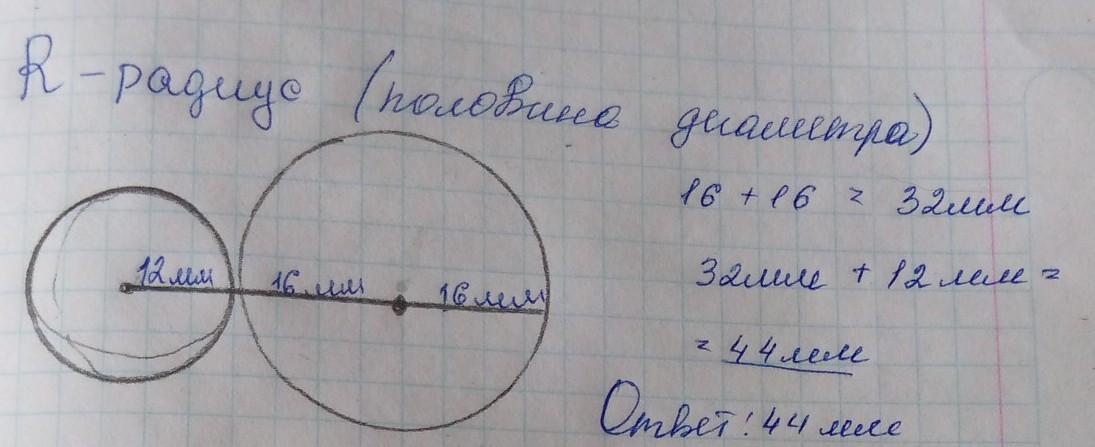 R - радиус (половина диаметра)
16 + 16 = 32мм
12мм 16мм 16мм
32мм + 12мм =
= 44мм
Ответ: 44мм